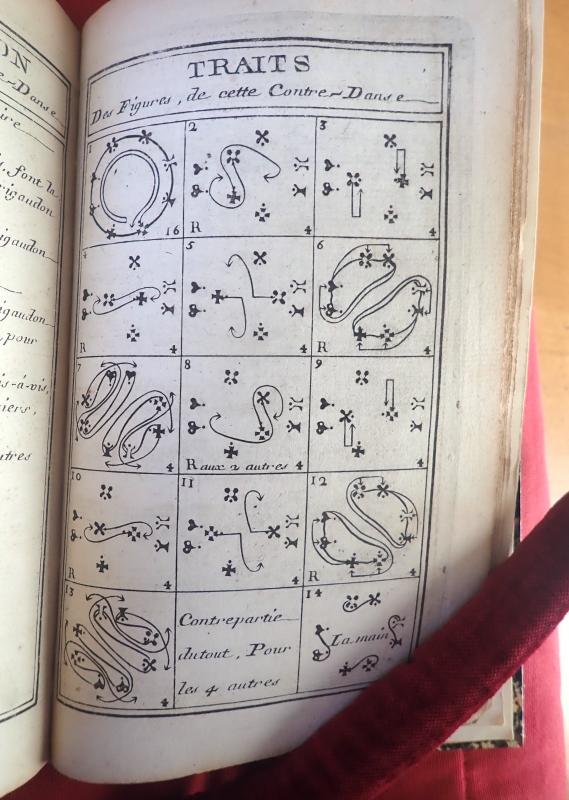 ON
e-Danse
ire
s, font la
rigaudon
igaudon
igaudon
, pour
is-à-vis,
niers,
utres
TRAITS
Des Figures, de cette Contre-Danse
1
16
2
R
4
3
4
4
R
4
5
4
6
R
4
7
4
8
R aux 2 autres 4
9
4
10
R
4
11
4
12
R
4
13
4
Contrepartie
dutout, Pour
les 4 autres
14
La main
4